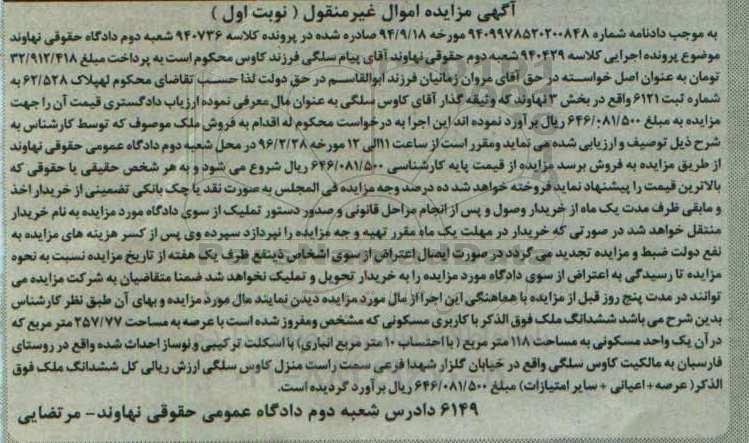 آگهی مزایده اموال غیرمنقول ( نوبت اول )
به موجب دادنامه شماره ۹۴۰۹۹۷۸۵۲۰۲۰۰۸۴۸ مورخه ۹۴/۹/۱۸ صادره شده در پرونده کلاسه ۹۴۰۷۳۶ شعبه دوم دادگاه حقوقی نهاوند
موضوع پرونده اجرایی کلاسه ۹۴۰۴۲۹ شعبه دوم حقوقی نهاوند آقای پیام سلگی فرزند کاوس محکوم است به پرداخت مبلغ ۳۲/۹۱۲/۴۱۸
تومان به عنوان اصل خواسته در حق آقای مروان زمانیان فرزند ابوالقاسم در حق دولت لذا حسب تقاضای محکوم لهپلاک ۶۲/۵۲۸ به
شماره ثبت ۶۱۲۱ واقع در بخش ۳ نهاوند که وثیقه گذار آقای کاوس سلگی به عنوان مال معرفی نموده ارزیاب دادگستری قیمت آن را جهت
مزایده به مبلغ ۶۴۶/۰۸۱/۵۰۰ ریال برآورد نموده اند این اجرا به درخواست محکوم له اقدام به فروش ملک موصوف که توسط کارشناس به
شرح ذیل توصیف و ارزیابی شده می نماید ومقرر است از ساعت ۱۱الی ۱۲ مورخه ۹۶/۲/۲۸ در محل شعبه دوم دادگاه عمومی حقوقی نهاوند
از طریق مزایده به فروش برسد مزایده از قیمت پایه کارشناسی ۶۴۶/۰۸۱/۵۰۰ ریال شروع می شود و به هر شخص حقیقی یا حقوقی که
بالاترین قیمت را پیشنهاد نماید فروخته خواهد شد ده درصد وجه مزایده فی المجلس به صورت نقد یا چک بانکی تضمینی از خریدار اخذ
و مابقی ظرف مدت یک ماه از خریدار وصول و پس از انجام مراحل قانونی و صدور دستور تملیک از سوی دادگاه مورد مزایده به نام خریدار
منتقل خواهد شد در صورتی که خریدار در مهلت یک ماه مقرر تهیه و جه مزایده را نپردازد سپرده وی پس از کسر هزینه های مزایده به
نفع دولت ضبط و مزایده تجدید می گردد در صورت ایصال اعتراض از سوی اشخاص ذینفع ظرف یک هفته از تاریخ مزایده نسبت به نحوه
مزایده تا رسیدگی به اعتراض از سوی دادگاه مورد مزایده را به خریدار تحویل و تملیک نخواهد شد ضمنا متقاضیان به شرکت مزایده می
توانند در مدت پنج روز قبل از مزایده با هماهنگی این اجرا از مال مورد مزایده دیدن نمایند مال مورد مزایده و بهای آن طبق نظر کارشناس
بدین شرح می باشد ششدانگ ملک فوق الذکر با کاربری مسکونی که مشخص ومفروز شده است با عرصه به مساحت ۲۵۷/۷۷ متر مربع که
در آن یک واحد مسکونی به مساحت ۱۱۸ متر مربع ( با احتساب ۱۰ متر مربع انباری) با اسکلت ترکیبی و نوساز احداث شده واقع در روستای
فارسبان به مالکیت کاوس سلگی واقع در خیابان گلزار شهدا فرعی سمت راست منزل کاوس سلگی ارزش ریالی کل ششدانگ ملک فوق
الذکر( عرصه+ اعیانی + سایر امتیازات) مبلغ ۶۴۶/۰۸۱/۵۰۰ ریال برآورد گردیده است.
۶۱۴۹ دادرس شعبه دوم دادگاه عمومی حقوقی نهاوند- مرتضایی